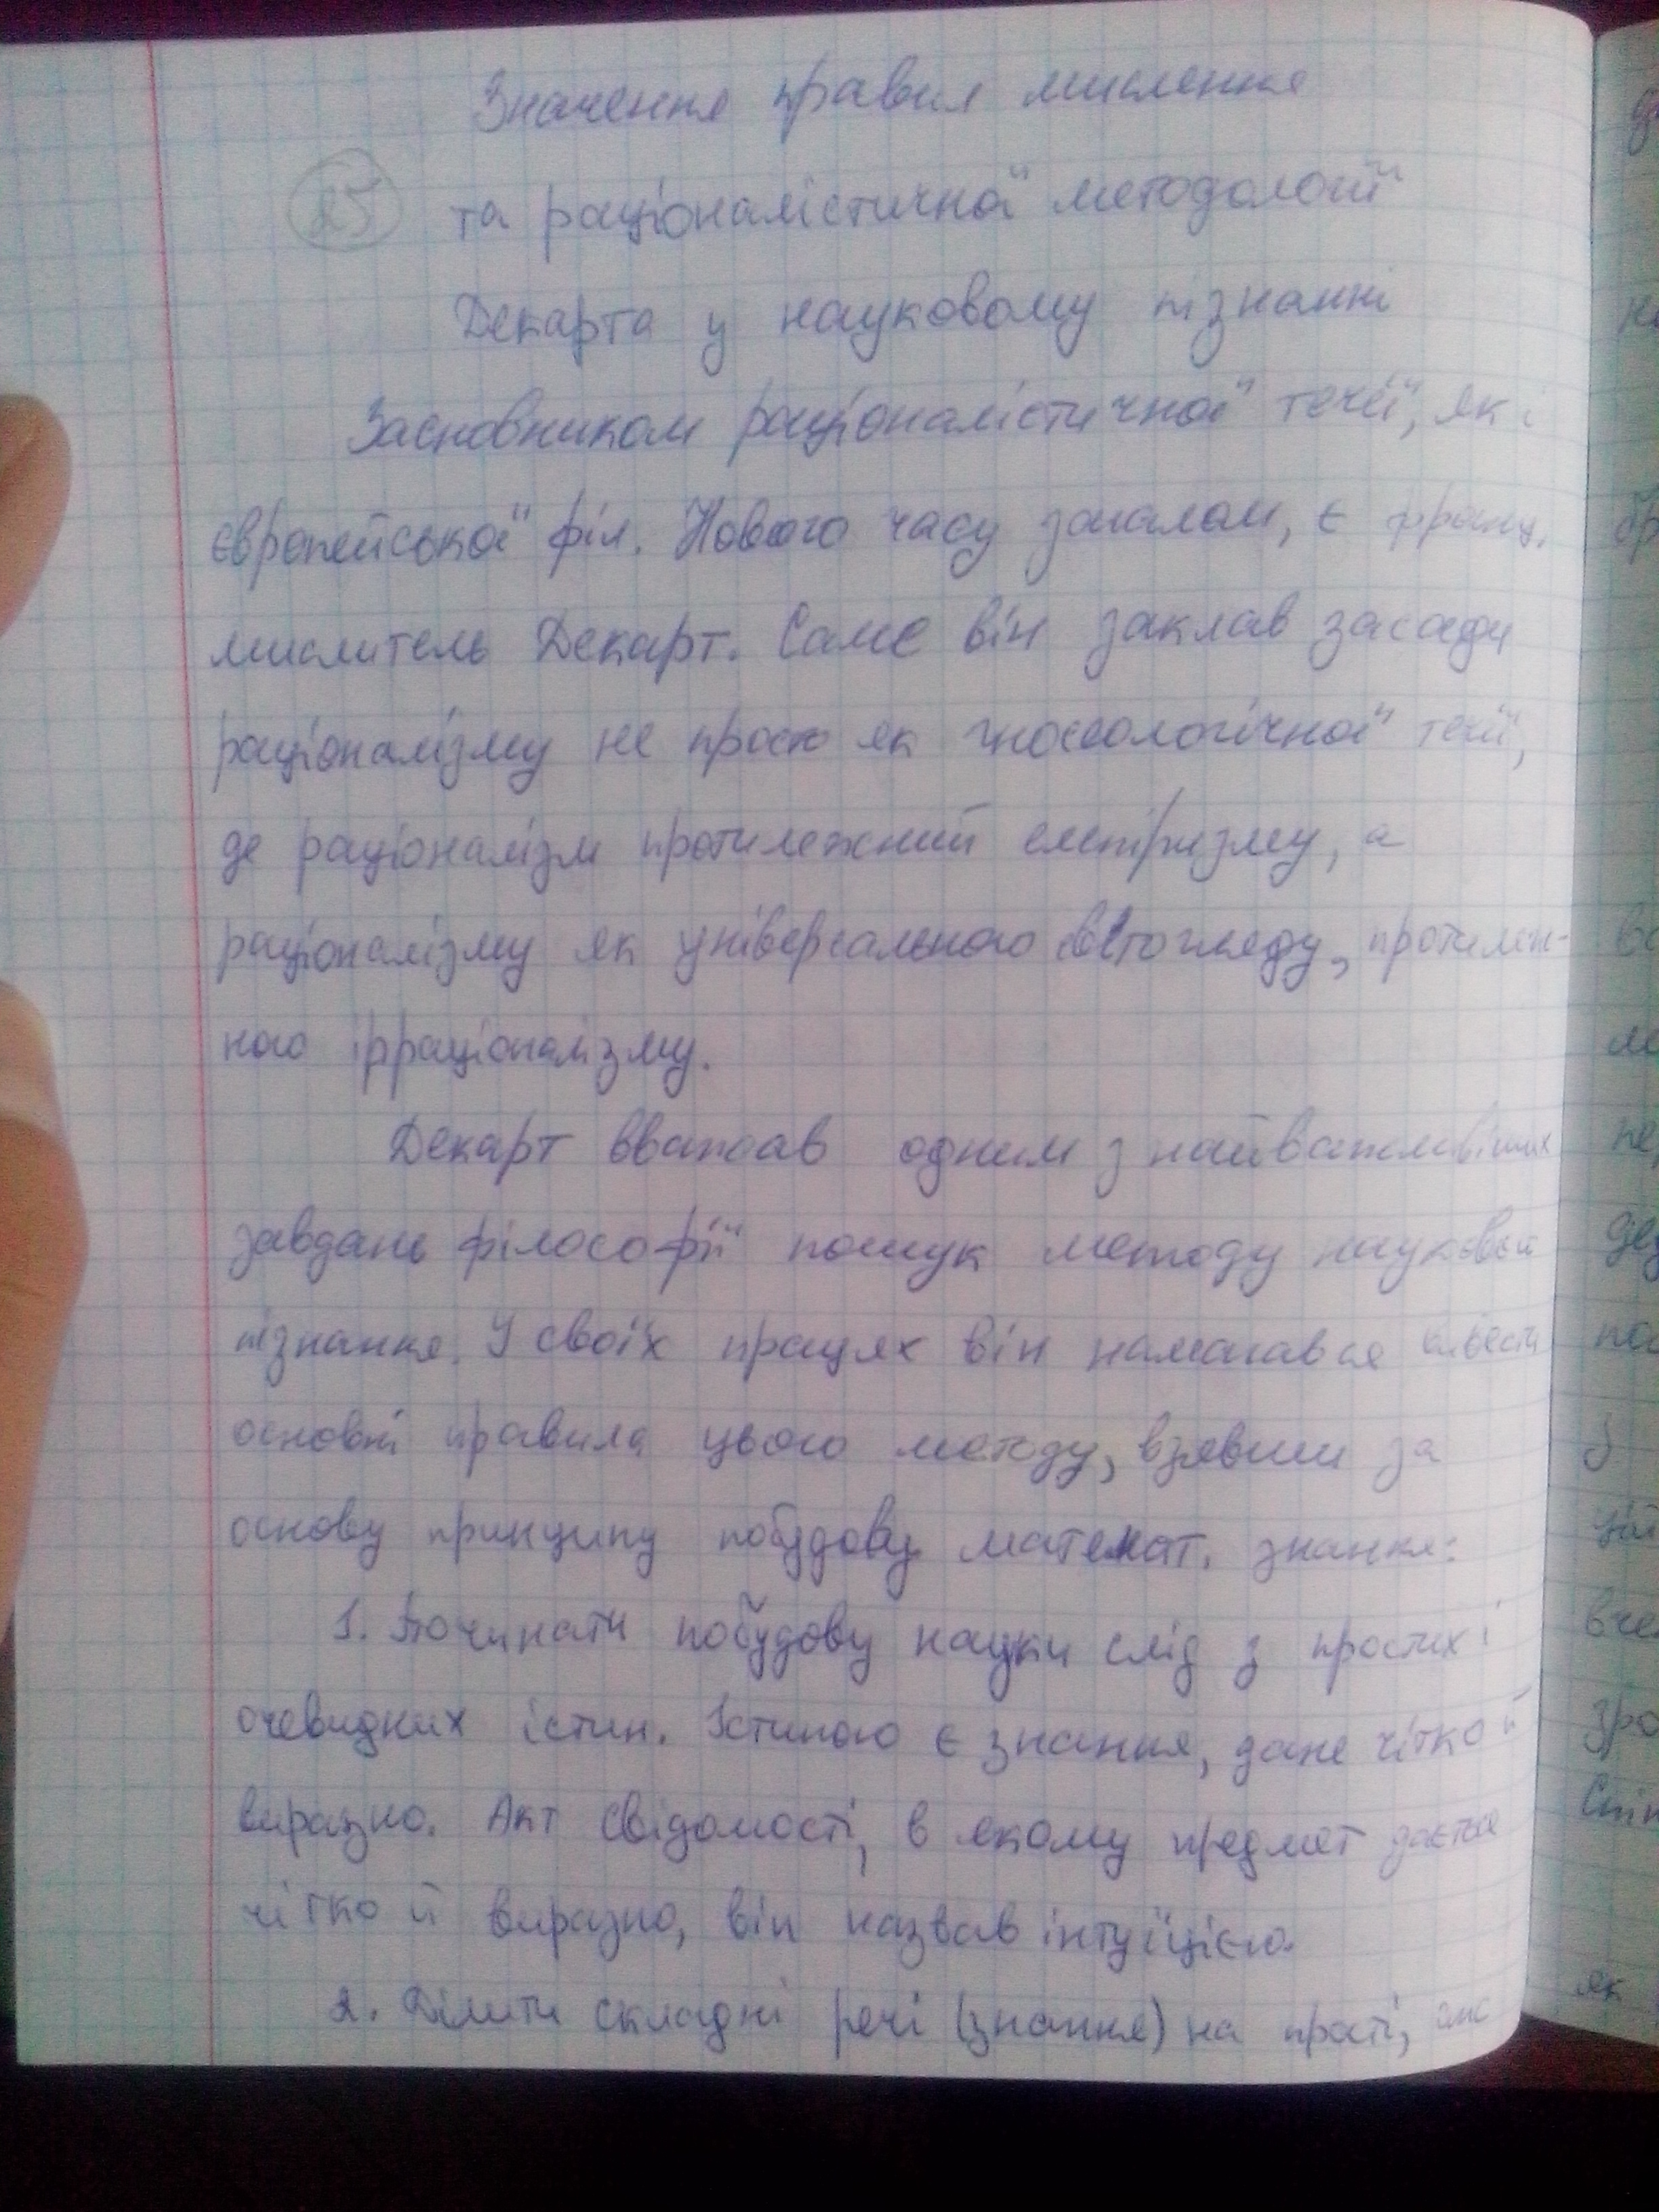 Значення правил мислення
25 та раціоналістичної методології
Декарта у науковому пізнанні
Засновником раціоналістичної течії, як і
європейської філ. Нового часу загалом, є франц.
мислитель Декарт. Саме він заклав засади
раціоналізму не просто як гносеологічної течії,
де раціоналізм протилежний емпіризму, а
раціоналізму як універсального світогляду, протилеж-
ного ірраціоналізму.
Декарт вважав одним з найважливіших
завдань філософії пошук методу наукового
пізнання. У своїх працях він намагався вивести
основні правила цього методу, взявши за
основу принципу побудову математ. знання:
1. Починати побудову науки слід з простих і
очевидних істин. Істиною є знання, дане чітко й
виразно. Акт свідомості, в якому предмет дається
чітко й виразно, він назвав інтуїцією.
2. Ділити складні речі (знання) на прості,